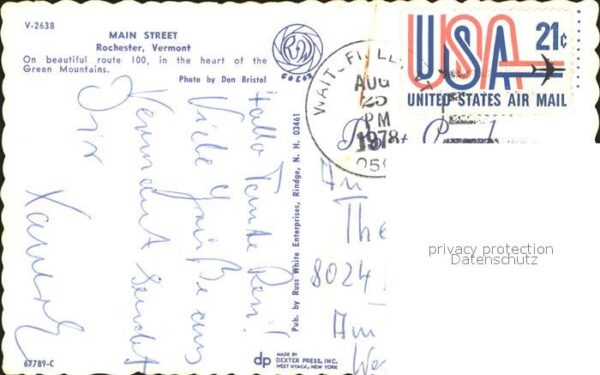 V-2638
MAIN STREET
Rochester, Vermont
On beautiful route 100, in the heart of the
Green Mountains.
Photo by Don Bristol
COLOR
Hallo Tante Resi!
Viele
Vermont sendet
Dir
Pub. by Russ White Enterprises, Rindge, N. H. 03461
67789-C
dp MADE BY
DEXTER PRESS, INC.
WEST NYACK, NEW YORK
AUG
25
PM
1978
USA 21¢
UNITED STATES AIR MAIL
Post Card
An
The
8024
Am
We
privacy protection
Datenschutz